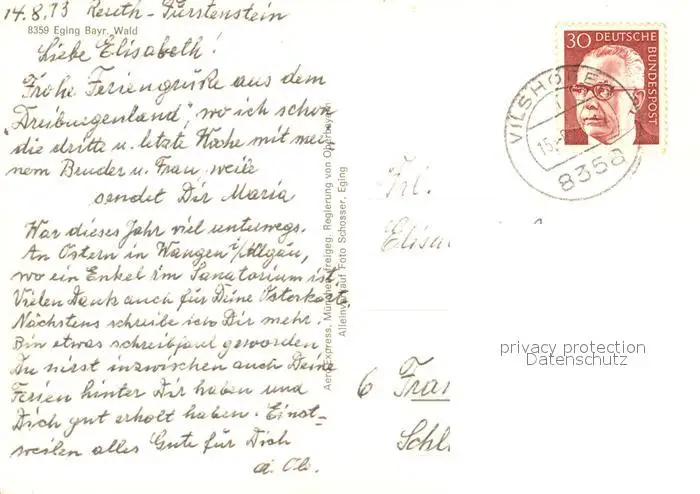 14.8.73 Reuth-Fürstenstein
8359 Eging Bayr. Wald
Liebe Elisabeth!
Frohe Feriengrüße aus dem
"Dreiburgenland", wo ich schon
die dritte u. letzte Woche mit mei-
nem Bruder u. Frau, weile
sendet Dir Maria
War dieses Jahr viel unterwegs.
An Ostern in Wangen i/Allgäu,
wo ein Enkel im Sanatorium ist.
Vielen Dank auch für Deine Osterkarte.
Nächstens schreibe ich Dir mehr.
Bin etwas schreibfaul geworden
Du wirst inzwischen auch Deine
Ferien hinter Dir haben und
Dich gut erholt haben. Einst-
weilen alles Gute für Dich
Aero Express, München, freigeg. Regierung von Oberbayern
Alleinverkauf Foto Schosser, Eging
30 DEUTSCHE BUNDESPOST
VILSHOFEN
15.
8358
Frl.
Elisa
6 Fran
Schl
privacy protection
Datenschutz